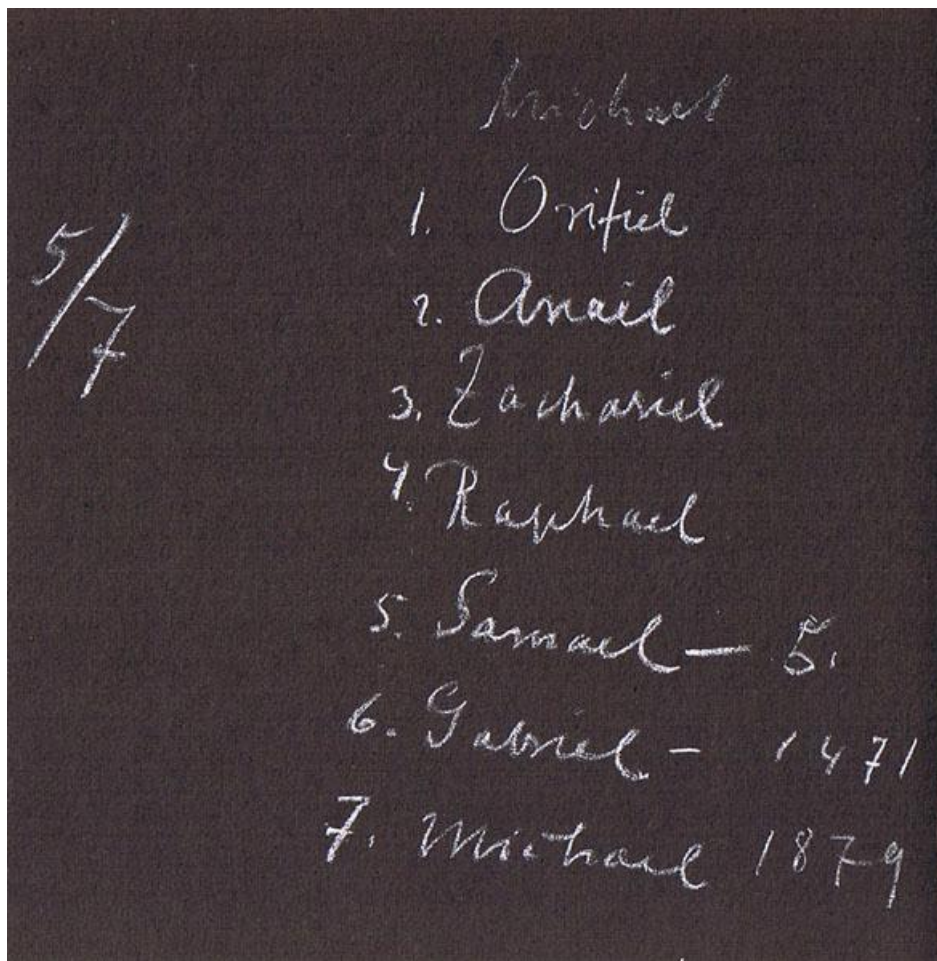 Michael
1. Orifiel
5/7
2. Anael
3. Zachariel
4. Raphael
5. Samael – 5.
6. Gabriel – 1471
7. Michael 1879